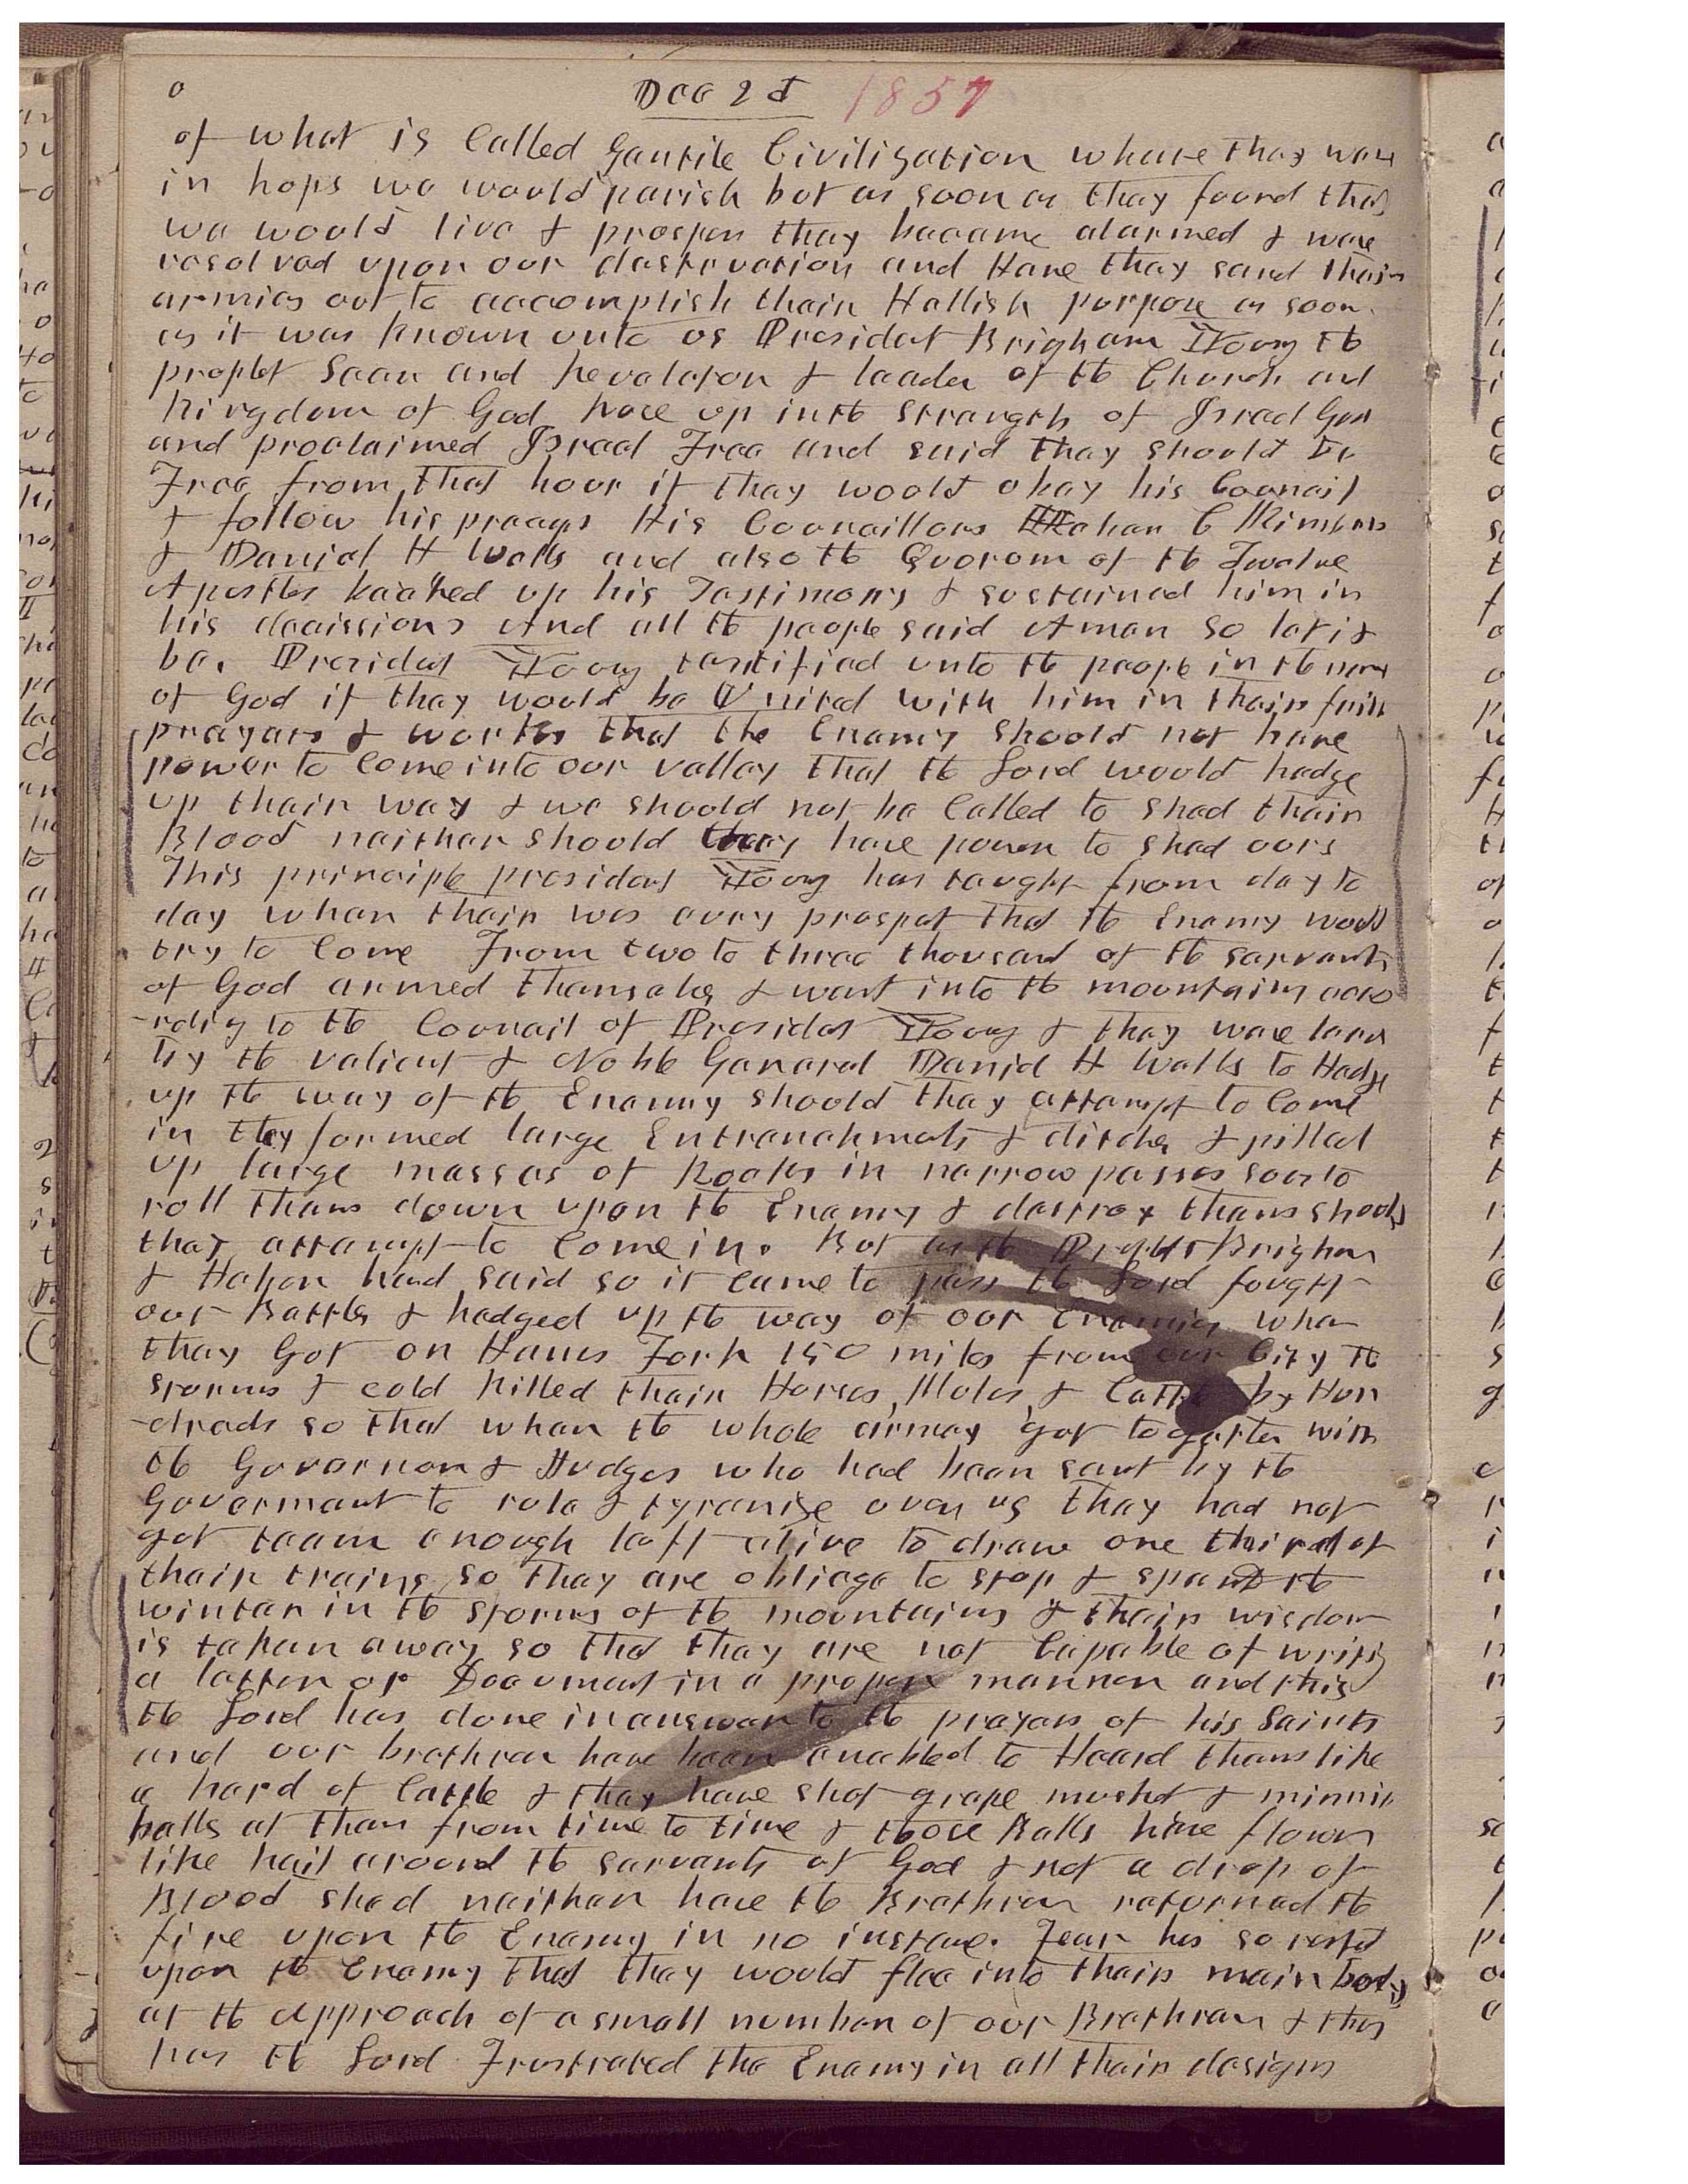 Dec 2d 1857
of what is Called Gentile Civilization where they ware
in hops we would perish but as soon as they found that
we would live & prosper they became alarmed & were
resolved upon our destruction and Have they send their
armies out to accomplish their Hellish purpose as soon
as it was known unto us President Brigham Young the
prophet Seer and Revelator & leader of the Church and
Kingdom of God rose up in the strength of Israel God
and proclaimed Israel Free and said they should be
Free from that hour if they would obey his Council
& follow his prayers His Councillors Heber C Kimball
& Daniel H Wells and also the Quorom of the Twelve
Apostles backed up his Testimony & sustained him in
his decissions And all the people said Aman so let it
be. President Young testified unto the people in the name
of God if they would be United with him in their faith
prayers & works that the Enemy should not have
power to Come into our valley that the Lord would hedge
up their way & we should not be Called to shed their
Blood neither should they have power to shed ours
This principle president Young has taught from day to
day when their was evry prospet that the Enemy would
try to Come From two to three thousand of the servants
of God armed themselves & went into the mountains acco
-rdig to the Council of President Young & they were lead
by the valient & Noble General Daniel H Wells to Hedge
up the way of the Enemy should they attempt to Come
in they formed large Entrenchments & ditches & pilled
up large masses of Rocks in narrow passes so as to
roll them down upon the Enemy & destroy them should
they attempt to Come in. But as the Prophet Brigham
& Heber had said so it came to pass the Lord fought
our Battles & hedged up the way of our enemies when
they Got on Hams Fork 150 miles from our City the
storms & cold killed their Horses, Mules, & Cattle by Hun
-dreds so that when the whole armey got together with
the Governor & Judges who had been sent by the
Goverment to rule & tyranise over us they had not
got team enough left alive to draw one third of
their trains so they are obliege to stop & spend the
winter in the storms of the mountains & their wisdom
is taken away so that they are not Capable of writig
a letter or Document in a proper manner and this
the Lord has done in answer to the prayers of his Saints
and our brethren have been enabled to Heard them like
a herd of Cattle & they have shot grape musket & minnie
balls at them from time to time & those Balls have flown
like hail around the servants of God & not a drop of
Blood shed neither have the Brethren returned the
fire upon the Enemy in no instance. Fear has so rested
upon the Enemy that they would flee into their main body
at the approach of a small number of our Brethren & thus
has the Lord Frustrated the Enemy in all their designs